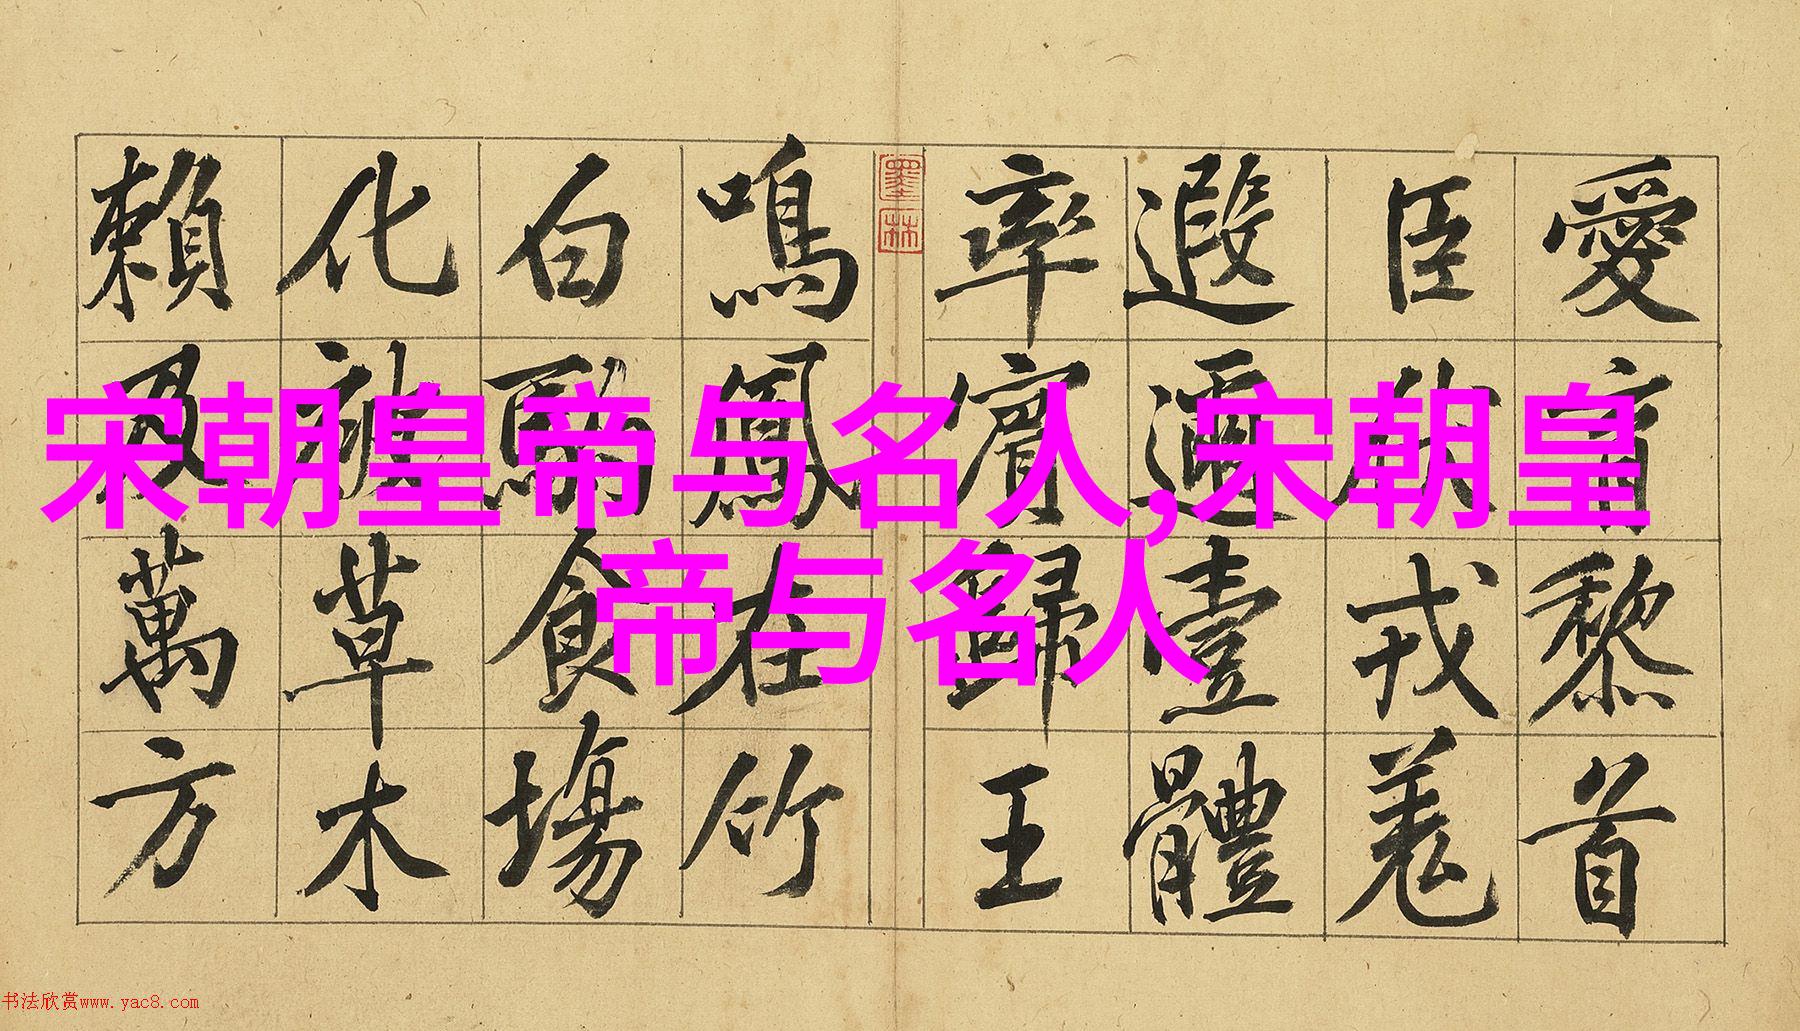 愛育黎首
臣伏戎羌
遐邇壹體
率賓歸王
墨林
鳴鳳在竹
白駒食場
化被草木
賴及萬方
宋朝皇帝与名人,宋朝皇
帝与名人
书法欣赏www.yac8.com